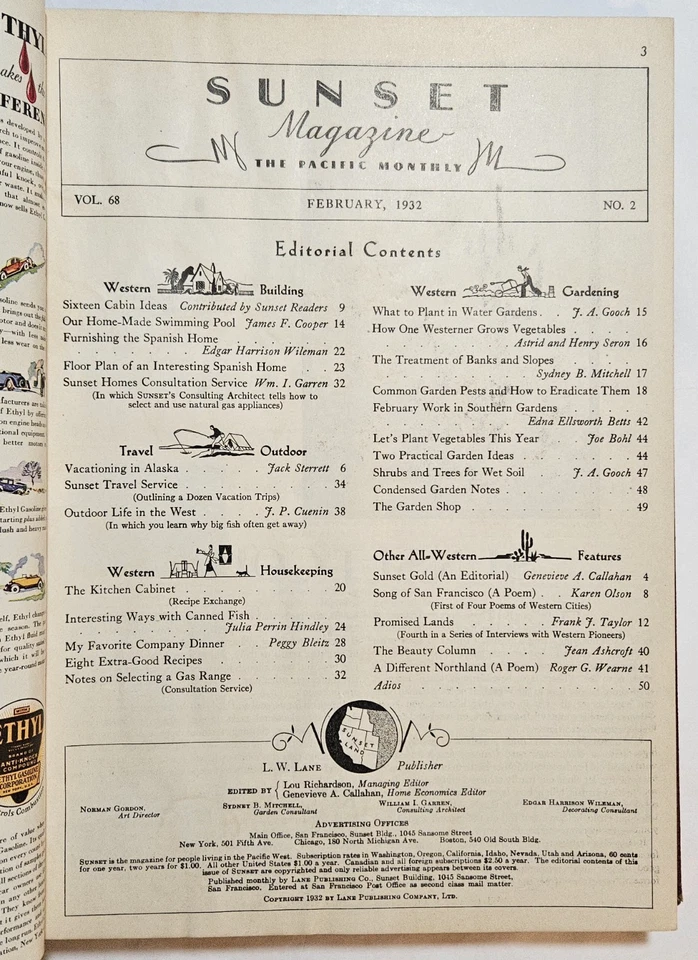 3
SUNSET
Magazine
THE PACIFIC MONTHLY
VOL. 68 FEBRUARY, 1932 NO. 2
Editorial Contents
Western Building
Sixteen Cabin Ideas Contributed by Sunset Readers 9
Our Home-Made Swimming Pool James F. Cooper 14
Furnishing the Spanish Home
. . . . . . . . . Edgar Harrison Wileman 22
Floor Plan of an Interesting Spanish Home . . . 23
Sunset Homes Consultation Service Wm. I. Garren 32
(In which SUNSET'S Consulting Architect tells how to
select and use natural gas appliances)
Travel Outdoor
Vacationing in Alaska . . . . . Jack Sterrett 6
Sunset Travel Service . . . . . . . . . . 34
(Outlining a Dozen Vacation Trips)
Outdoor Life in the West . . . . J. P. Cuenin 38
(In which you learn why big fish often get away)
Western Housekeeping
The Kitchen Cabinet . . . . . . . . . . 20
(Recipe Exchange)
Interesting Ways with Canned Fish . . . . .
. . . . . . . . . . Julia Perrin Hindley 24
My Favorite Company Dinner . . Peggy Bleitz 28
Eight Extra-Good Recipes . . . . . . . . 30
Notes on Selecting a Gas Range . . . . . . 32
(Consultation Service)
Western Gardening
What to Plant in Water Gardens . . J. A. Gooch 15
How One Westerner Grows Vegetables . . . .
. . . . . . . . . Astrid and Henry Seron 16
The Treatment of Banks and Slopes . . . .
. . . . . . . . . . Sydney B. Mitchell 17
Common Garden Pests and How to Eradicate Them 18
February Work in Southern Gardens . . . .
. . . . . . . . . . Edna Ellsworth Betts 42
Let's Plant Vegetables This Year . . . Joe Bohl 44
Two Practical Garden Ideas . . . . . . . 44
Shrubs and Trees for Wet Soil . . . J. A. Gooch 47
Condensed Garden Notes . . . . . . . . 48
The Garden Shop . . . . . . . . . . . 49
Other All-Western Features
Sunset Gold (An Editorial) Genevieve A. Callahan 4
Song of San Francisco (A Poem) . . Karen Olson 8
(First of Four Poems of Western Cities)
Promised Lands . . . . . . Frank J. Taylor 12
(Fourth in a Series of Interviews with Western Pioneers)
The Beauty Column . . . . . Jean Ashcroft 40
A Different Northland (A Poem) Roger G. Wearne 41
Adios . . . . . . . . . . . . . . 50
SUNSET
LAND
L. W. LANE Publisher
EDITED BY { Lou Richardson, Managing Editor
Genevieve A. Callahan, Home Economics Editor
NORMAN GORDON, Art Director
SYDNEY B. MITCHELL, Garden Consultant
WILLIAM I. GARREN, Consulting Architect
EDGAR HARRISON WILEMAN, Decorating Consultant
ADVERTISING OFFICES
Main Office, San Francisco, Sunset Bldg., 1045 Sansome Street
New York, 501 Fifth Ave. Chicago, 180 North Michigan Ave. Boston, 540 Old South Bldg.
SUNSET is the magazine for people living in the Pacific West. Subscription rates in Washington, Oregon, California, Idaho, Nevada, Utah and Arizona, 60 cents
for one year, two years for $1.00. All other United States $1.00 a year. Canadian and all foreign subscriptions $2.50 a year. The editorial contents of this
issue of SUNSET are copyrighted and only reliable advertising appears between its covers.
Published monthly by LANE PUBLISHING CO., Sunset Building, 1045 Sansome Street,
San Francisco. Entered at San Francisco Post Office as second class mail matter.
COPYRIGHT 1932 BY LANE PUBLISHING COMPANY, LTD.
ETHYL
ANTI-KNOCK
COMPOUND
ETHYL GASOLINE
CORPORATION